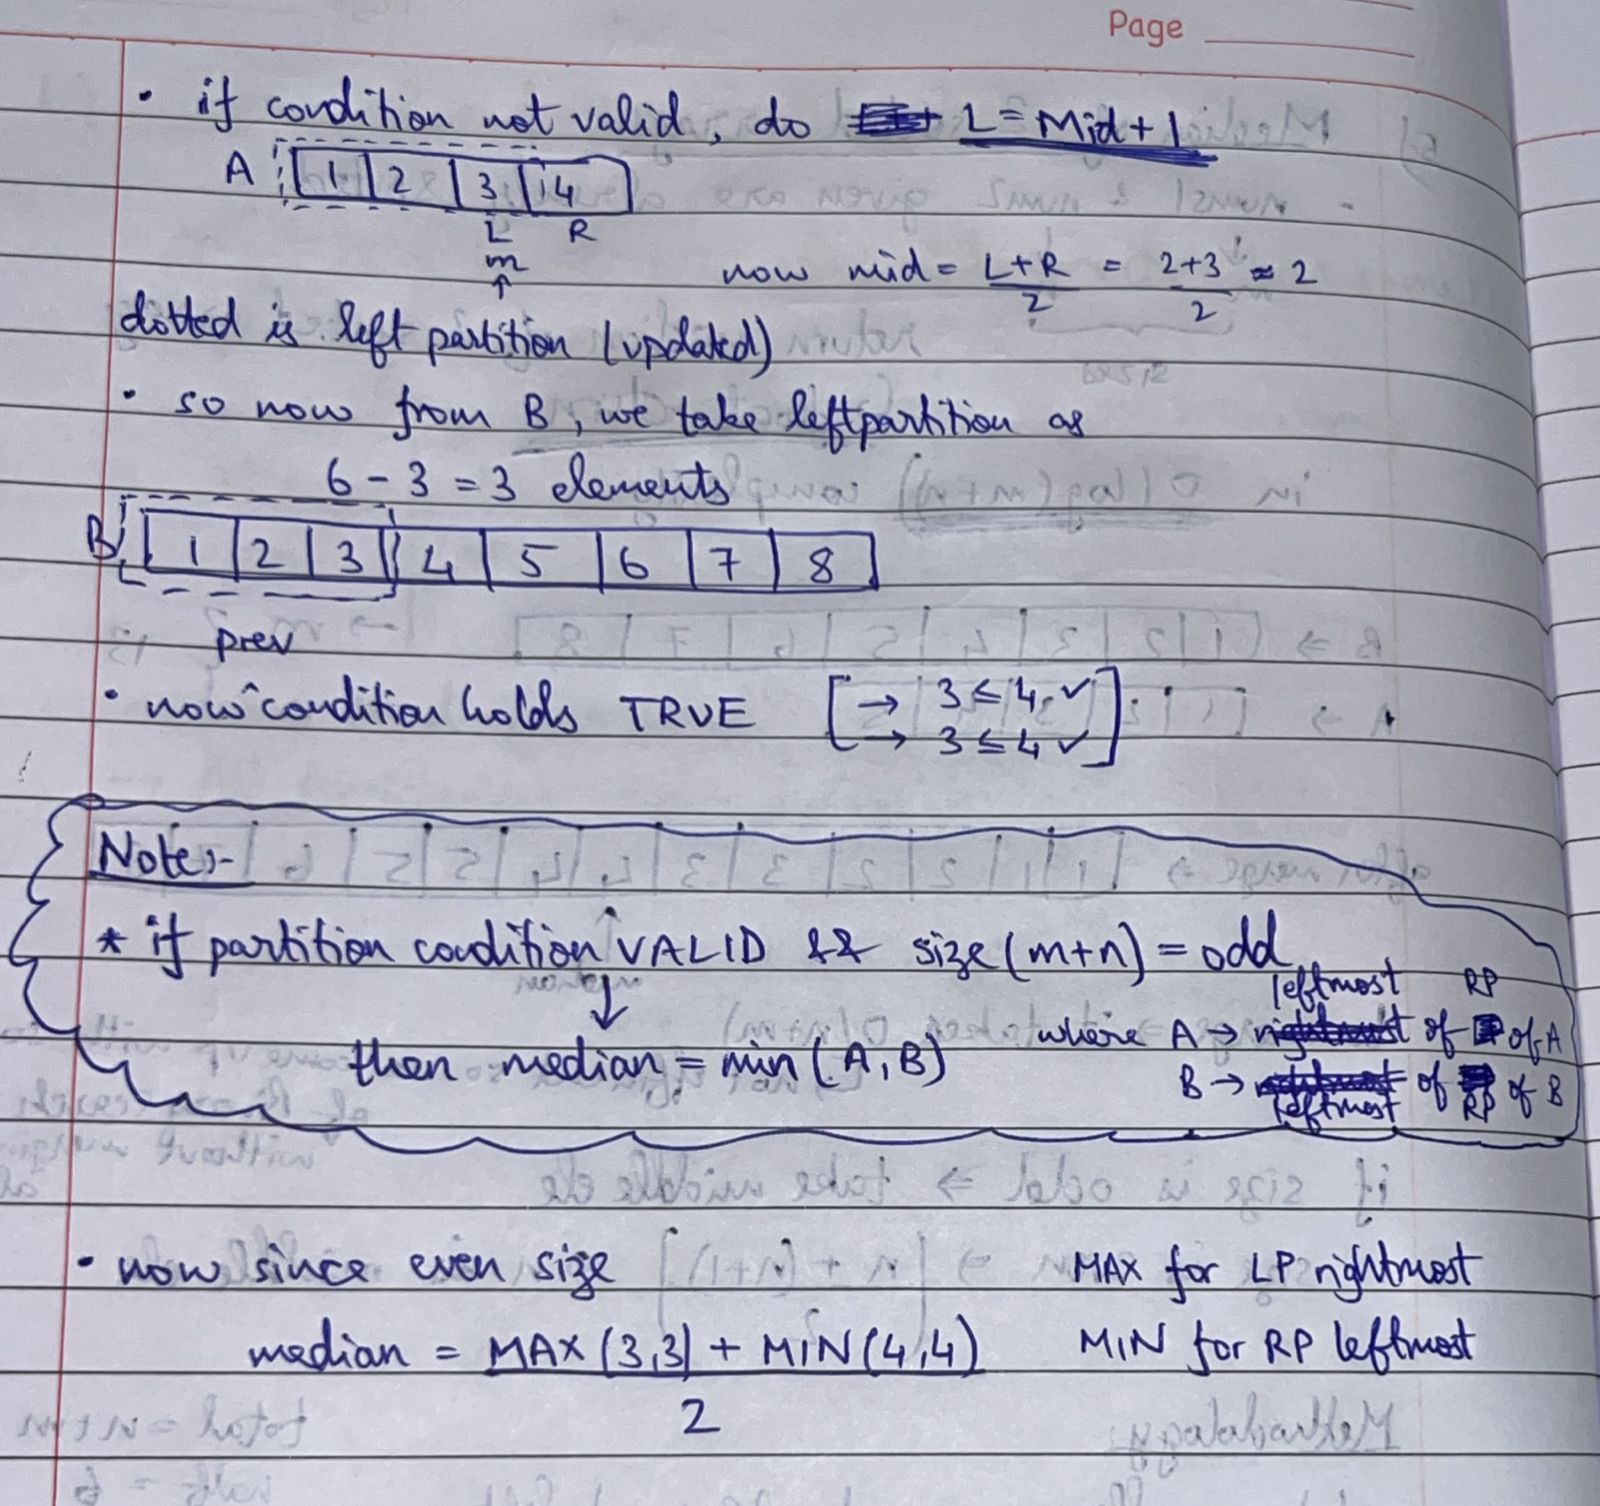 Page
• if condition not valid, do L = Mid + 1
A 1 2 3 4
L R
m
↑
now mid = L+R/2 = 2+3/2 ≈ 2
dotted is left partition (updated)
• so now from B, we take left partition as
6 - 3 = 3 elements
B 1 2 3 4 5 6 7 8
prev
• now ^ condition holds TRUE [→ 3 ≤ 4 ✓
→ 3 ≤ 4 ✓]
Note:-
* if partition condition VALID && size (m+n) = odd
↓
leftmost RP
then median = min (A, B) where A → of of A
B → of of B
leftmost RP
• now since even size MAX for LP rightmost
median = MAX (3,3) + MIN (4,4) MIN for RP leftmost
2